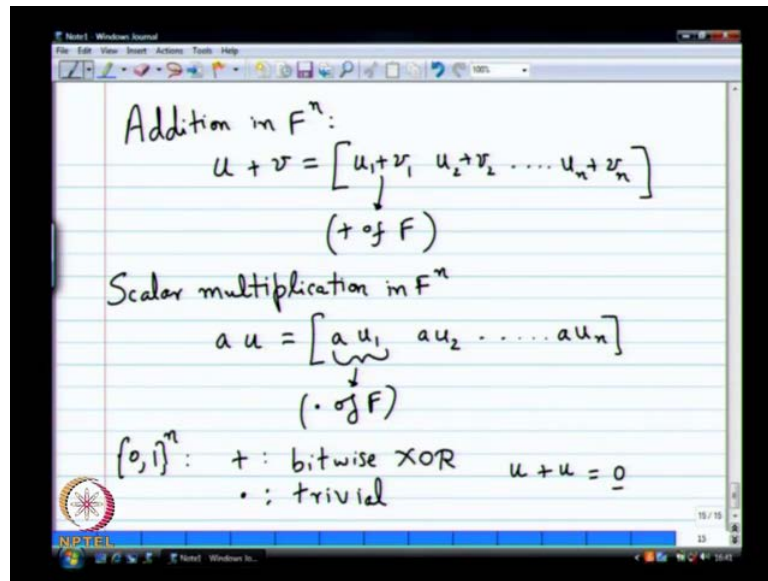 Note1 - Windows Journal
File Edit View Insert Actions Tools Help
100%
Addition in Fⁿ:
u + v = [u₁+v₁ u₂+v₂ .... uₙ+vₙ]
(+ of F)
Scalar multiplication in Fⁿ
a u = [a u₁ a u₂ ...... a uₙ]
(· of F)
{0,1}ⁿ: + : bitwise XOR u + u = 0
· : trivial
15/15
15
NPTEL
Note1 - Windows Jo...
16:41